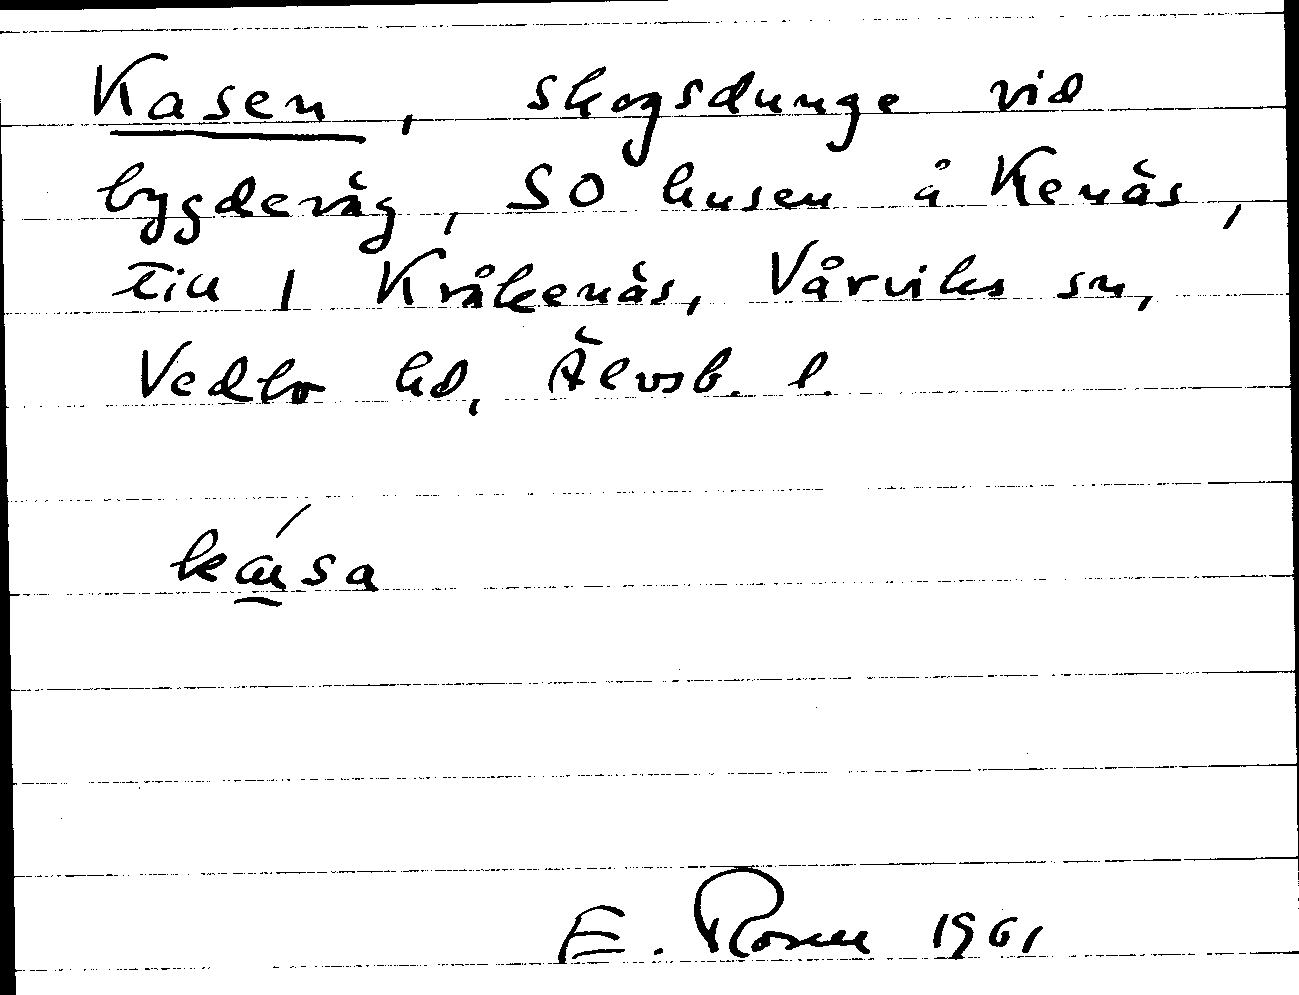 Kasen, skogsdunge vid
bygdeväg, SO husen å Kenäs,
till 1 Kråkenäs, Vårviks sn,
Vedbo hd, Älvsb. l.
kása
E. Rosen 1961